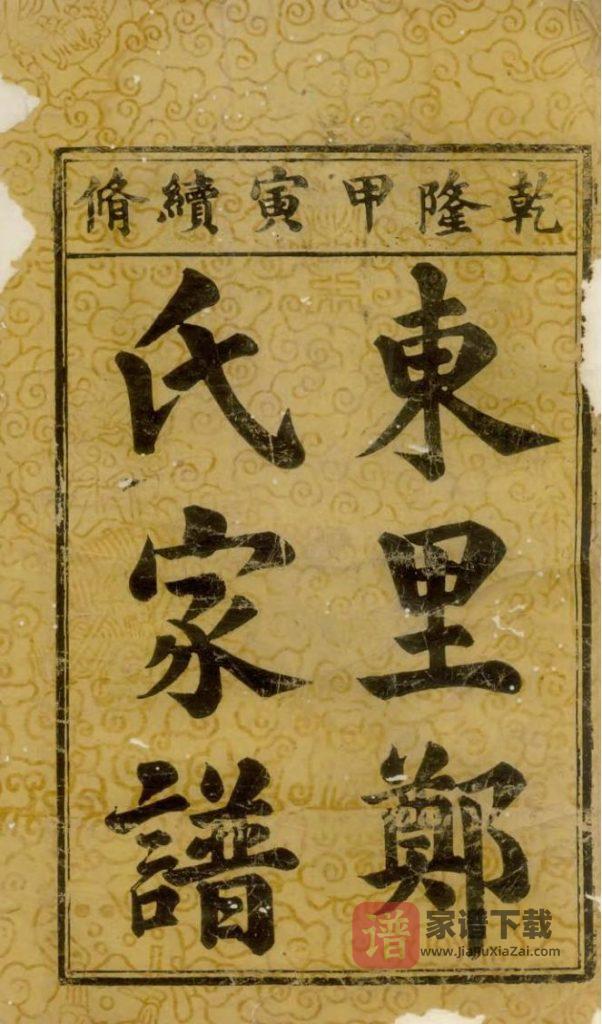 乾隆甲寅續脩
東里鄭
氏家譜
谱
家谱下载
www.JiaPuXiaZai.com